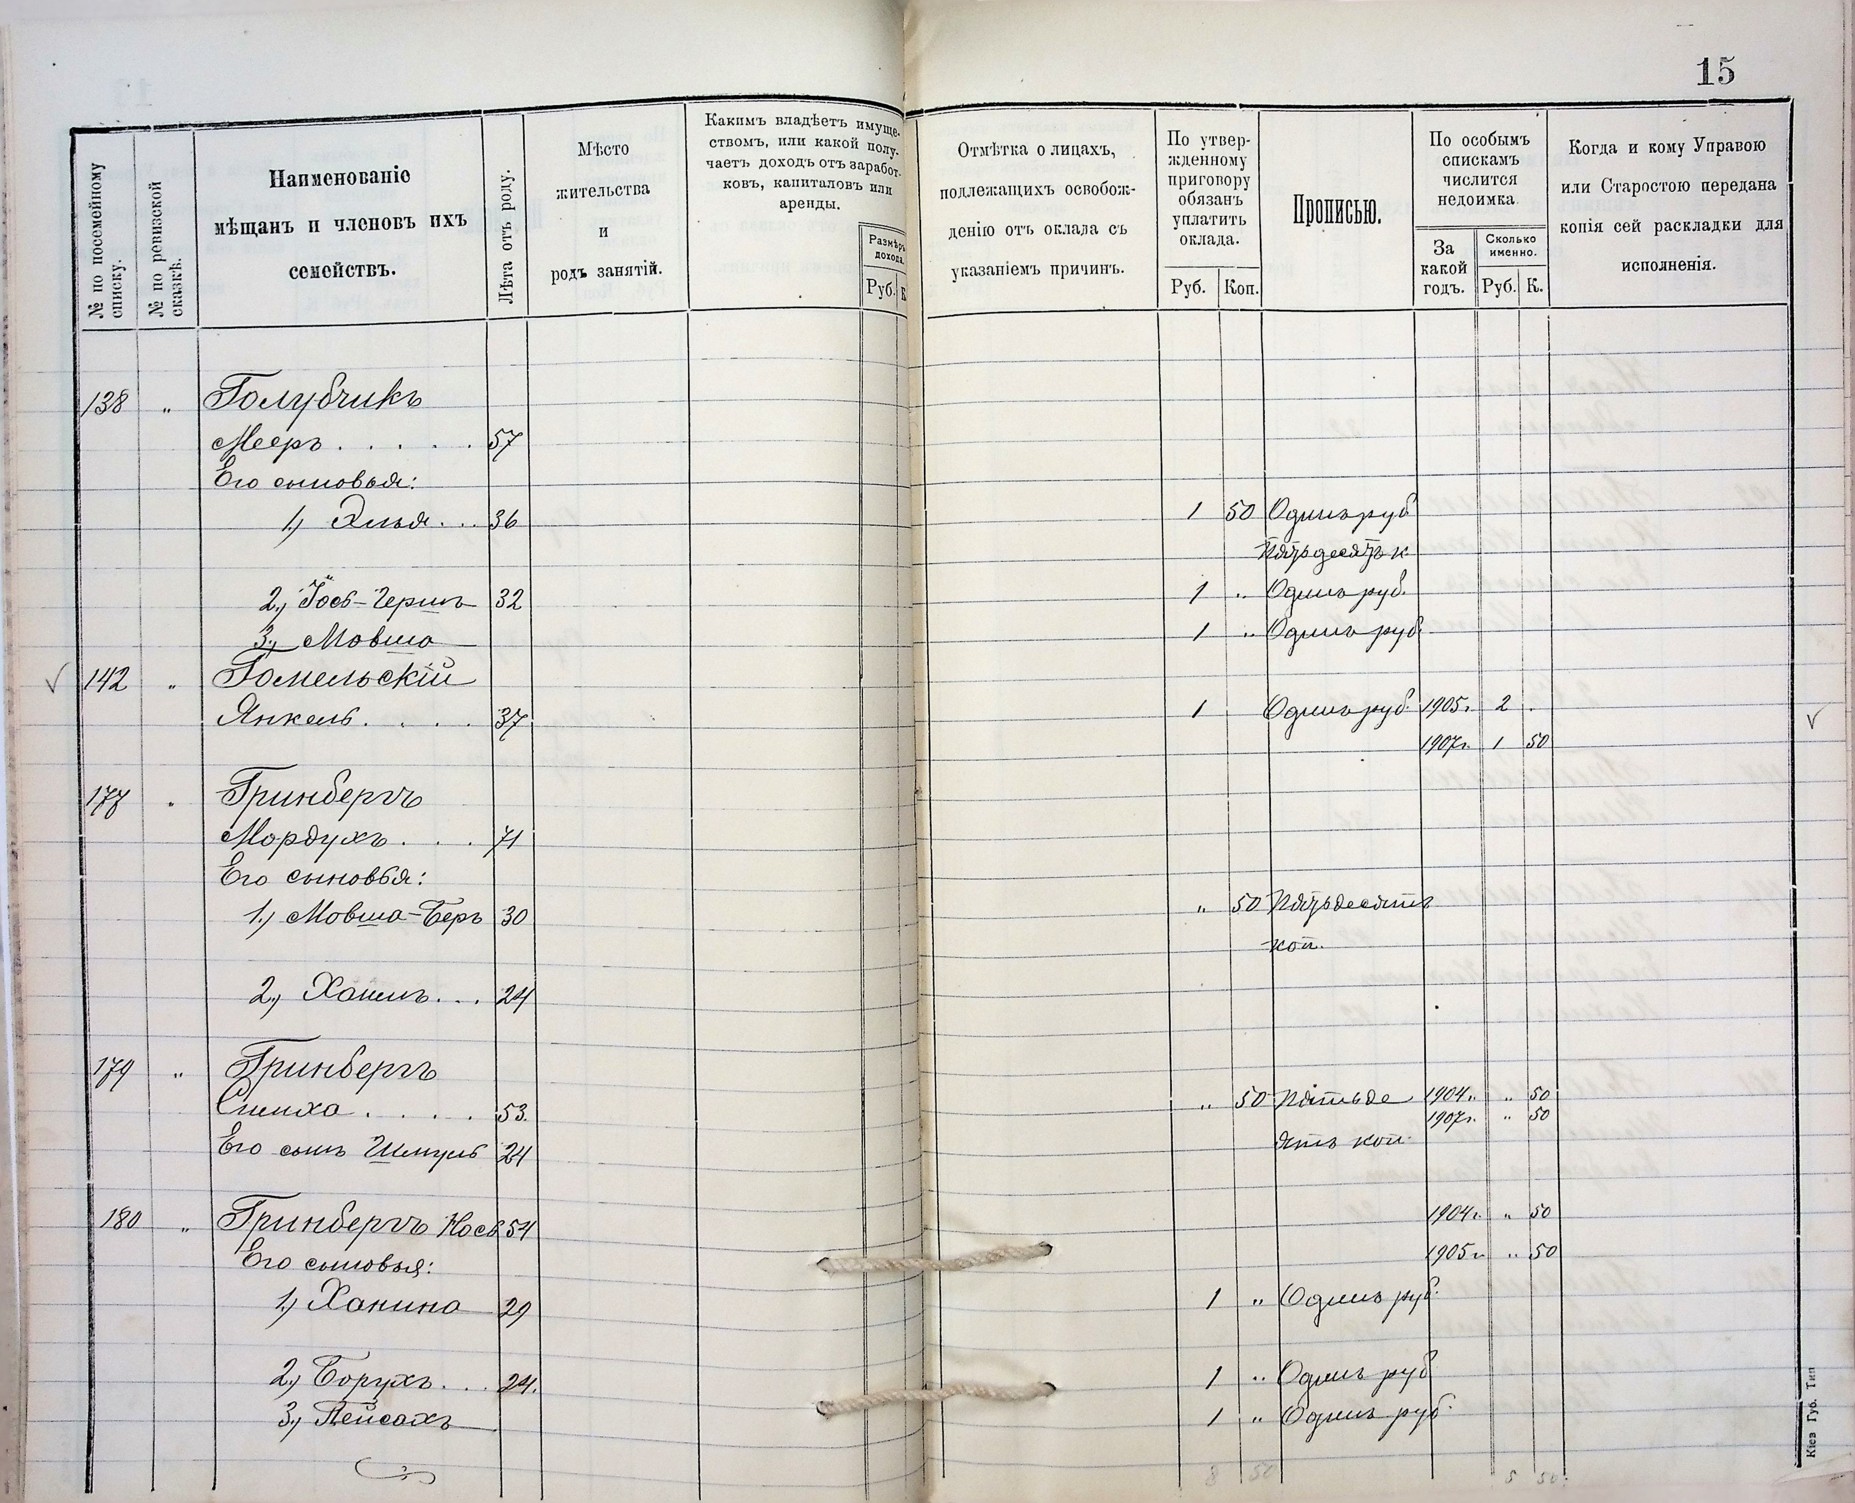 15
№ по посемейному списку.
№ по ревизской сказкѣ.
Наименованіе
мѣщанъ и членовъ ихъ
семействъ.
Лѣта отъ роду.
Мѣсто
жительства
и
родъ занятій.
Какимъ владѣетъ имуще-
ствомъ, или какой полу-
чаетъ доходъ отъ заработ-
ковъ, капиталовъ или
аренды.
Размѣръ
дохода.
Руб. К
Отмѣтка о лицахъ,
подлежащихъ освобож-
денію отъ оклада съ
указаніемъ причинъ.
По утвер-
жденному
приговору
обязанъ
уплатить
оклада.
Руб. Коп.
Прописью.
По особымъ
спискамъ
числится
недоимка
За
какой
годъ.
Сколько
именно.
Руб. К.
Когда и кому Управою
или Старостою передана
копія сей раскладки для
исполненія.
138 " Голубчикъ
Мееръ . . . . . 57
Его сыновья:
1.) Хилья . . . 36 1 50 Одинъ руб
Пятьдесятъ к
2.) Іось-Гершъ 32 1 " Одинъ руб.
3.) Мовша 1 " Одинъ руб.
142 " Гомельскій
Янкель . . . . 37 1 Одинъ руб. 1905г. 2 .
1907г. 1 50
177 " Гринбергъ
Мордухъ . . . 71
Его сыновья:
1.) Мовша-Беръ 30 " 50 Пятьдесятъ
коп.
2.) Хаимъ . . . 24
179 " Гринбергъ
Симха . . . . 53. " 50 Пятьде 1904г. " 50
1907г. " 50
Его сынъ Шмуль 24 сятъ коп.
180 " Гринбергъ Нось 54 1904г. " 50
Его сыновья: 1905г. " 50
1.) Ханина 29 1 " Одинъ руб.
2.) Борухъ . . . 24. 1 " Одинъ руб
3.) Пейсахъ 1 " Одинъ руб.
8 50 5 50.
Кіев Губ. Тип